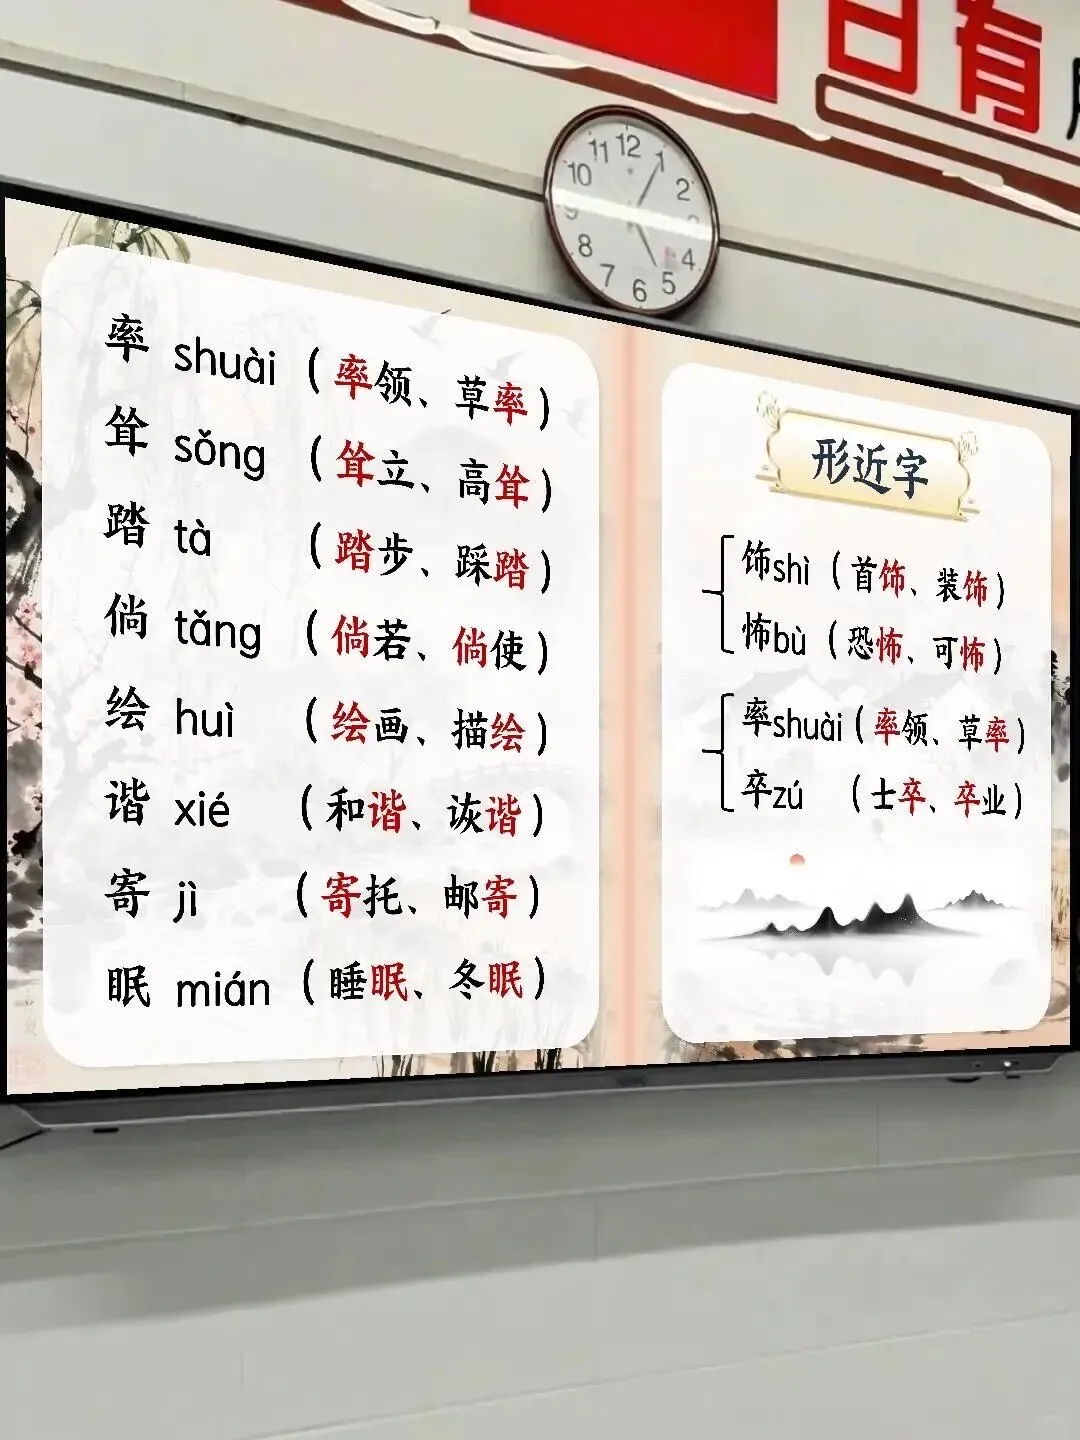 日有
12
1
2
3
4
5
6
7
8
9
10
11
率 shuài (率领、草率)
耸 sǒng (耸立、高耸)
踏 tà (踏步、踩踏)
倘 tǎng (倘若、倘使)
绘 huì (绘画、描绘)
谐 xié (和谐、诙谐)
寄 jì (寄托、邮寄)
眠 mián (睡眠、冬眠)
形近字
饰shì (首饰、装饰)
怖bù (恐怖、可怖)
率shuài (率领、草率)
卒zú (士卒、卒业)